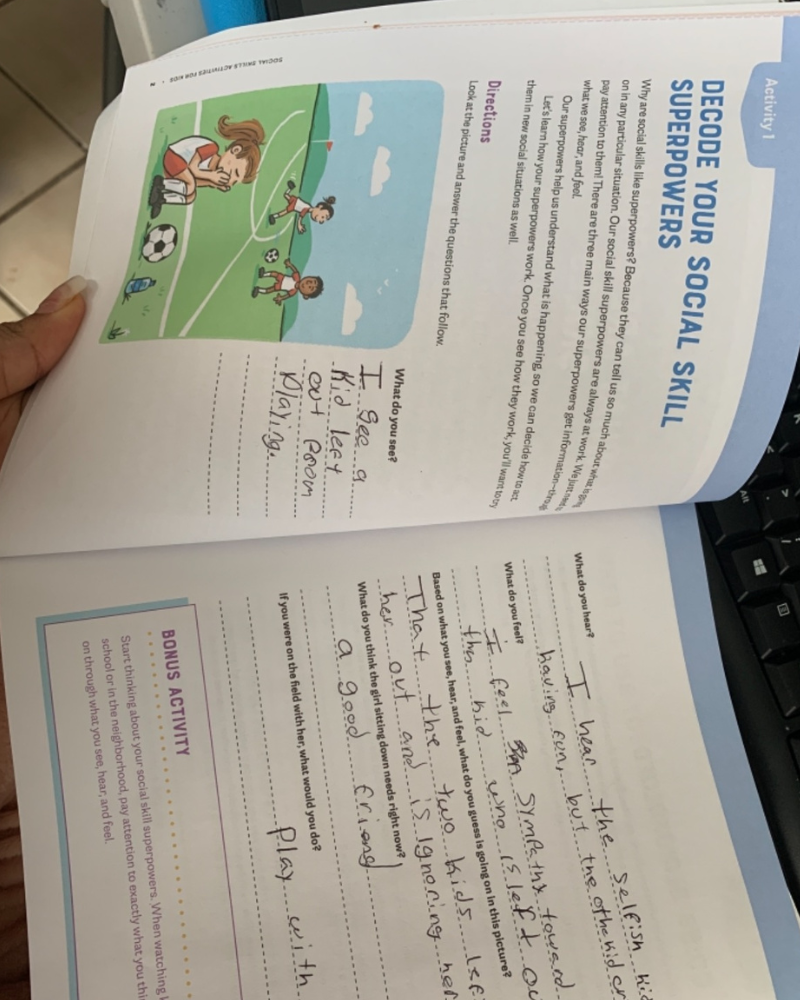 Activity 1
DECODE YOUR SOCIAL SKILL
SUPERPOWERS
Why are social skills like superpowers? Because they can tell us so much about what is going
on in any particular situation. Our social skill superpowers are always at work. We just need to
pay attention to them! There are three main ways our superpowers get information—through
what we see, hear, and feel.
Our superpowers help us understand what is happening, so we can decide how to act.
Let's learn how your superpowers work. Once you see how they work, you'll want to try
them in new social situations as well.
Directions
Look at the picture and answer the questions that follow.
What do you see?
I see a
kid left
out from
Playing.
SOCIAL SKILLS ACTIVITIES FOR KIDS
What do you hear?
I hear the selfish
having fun, but the
What do you feel?
I feel sympathy toward
the kid who is left
Based on what you see, hear, and feel, what do you guess is going on in this picture?
That the two kids
her out and is Ignoring
What do you think the girl sitting down needs right now?
a good friend
If you were on the field with her, what would you do?
Play with
BONUS ACTIVITY
Start thinking about your social skill superpowers. When watching
school or in the neighborhood, pay attention to exactly what you
on through what you see, hear, and feel.